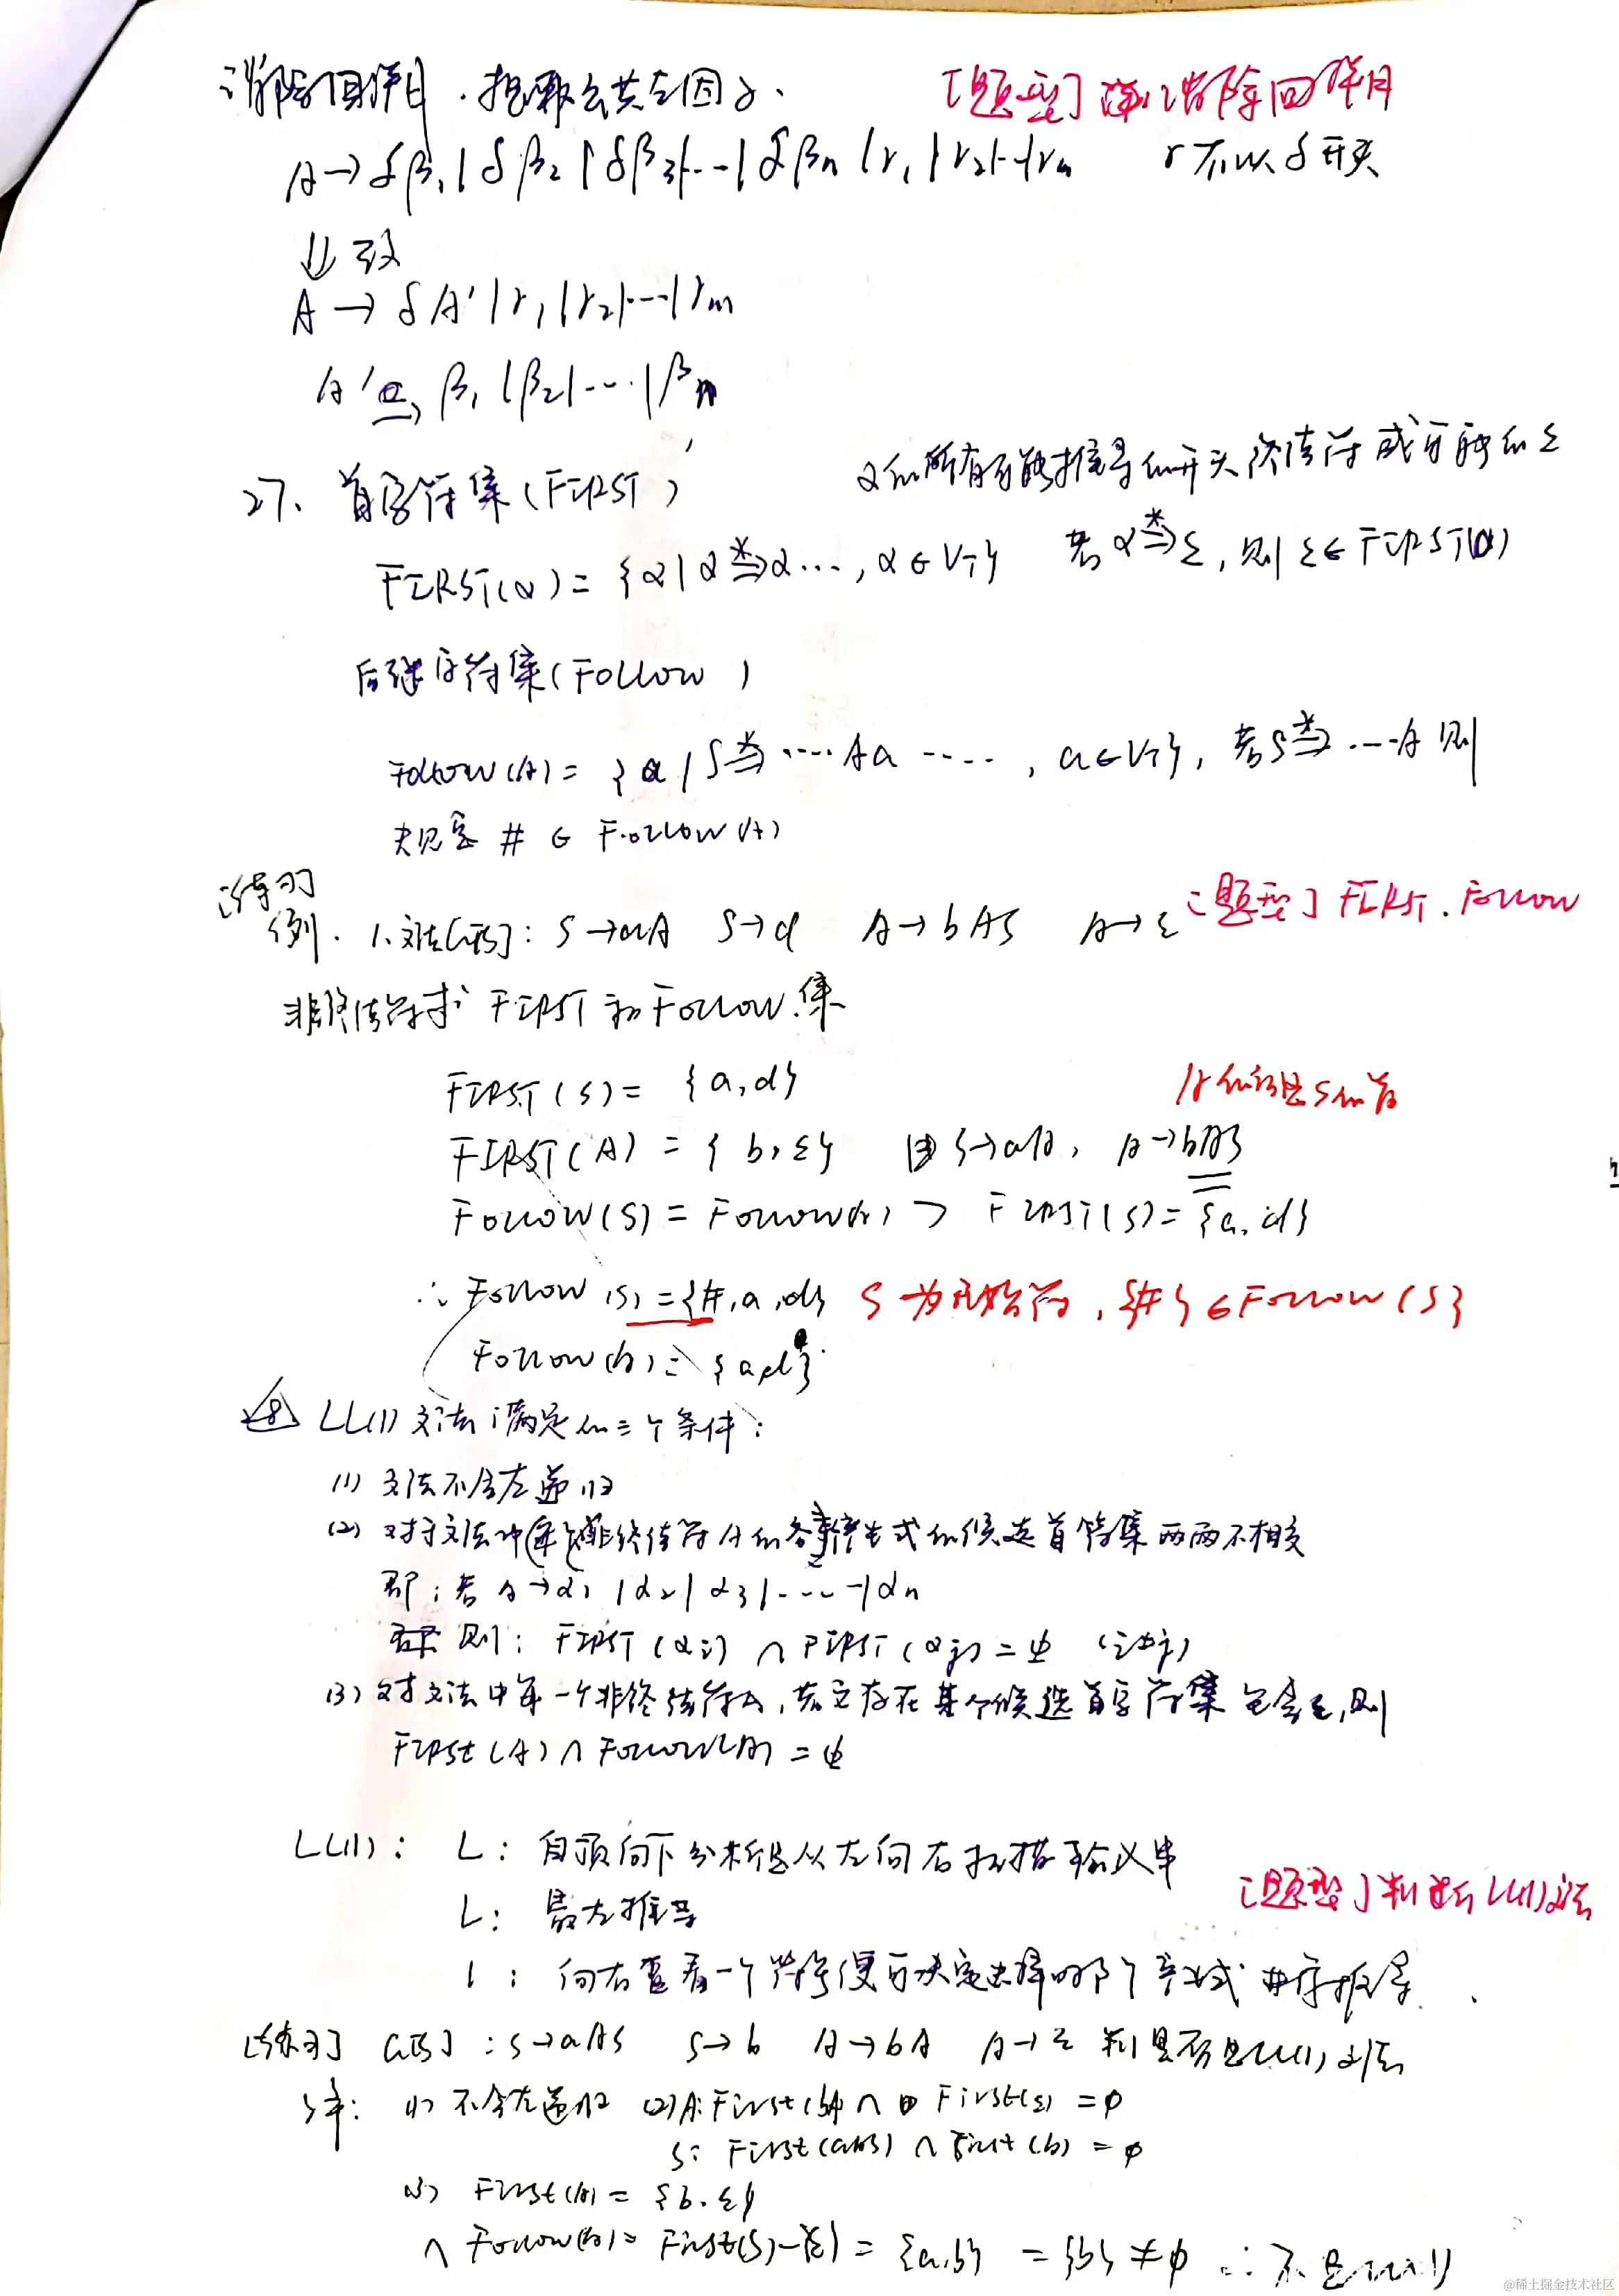 消除回溯 · 提取公共左因子、 [题型] 消除回溯
A → δβ₁ | δβ₂ | δβ₃|…| δβn | r₁ | r₂|…|rm r不以δ开头
⇓ 改
A → δA' | r₁ | r₂|…| rm
A' → β₁ | β₂|…| βn
27、首字符集(FIRST) α的所有可能推导的开头终结符或可能的ε
FIRST(α) = {a | α ⇒* a…, a ∈ VT} 若 α ⇒* ε, 则 ε ∈ FIRST(α)
后继字符集(Follow)
Follow(A) = {a | S ⇒* …Aa…, a ∈ VT}, 若 S ⇒* …A 则
规定 # ∈ Follow(A)
[练习]
例. 1.文法G[S]: S→aA S→d A→bAS A→ε [题型] FIRST. Follow
非终结符求 FIRST 和 Follow 集
FIRST(S) = {a, d}
A的后是S的首
FIRST(A) = {b, ε} 由 S→aA, A→bAS
Follow(S) = Follow(A) ⊃ FIRST(S) = {a, d}
∴ Follow(S) = {#, a, d} S为开始符, {#} ∈ Follow(S)
Follow(A) = {a, d}
28 LL(1) 文法满足的三个条件:
(1) 文法不含左递归
(2) 对于文法中每个非终结符A的各产生式的候选首符集两两不相交
即: 若 A → α₁ | α₂ | α₃ |…| αn
则: FIRST(αi) ∩ FIRST(αj) = φ (i≠j)
(3) 对文法中每一个非终结符A, 若它存在某个候选首字符集包含ε, 则
First(A) ∩ Follow(A) = φ
LL(1): L: 自顶向下分析是从左向右扫描输入串
L: 最左推导 [题型] 判断LL(1)文法
1: 向右查看一个符号便可决定选择哪个产生式进行推导.
[练习] G[S]: S→aAS S→b A→bA A→ε 判是否是LL(1)文法
解: (1) 不含左递归 (2) A: First(bA) ∩ First(ε) = φ
S: First(aAS) ∩ First(b) = φ
(3) First(A) = {b, ε}
∩ Follow(A) = First(S)-{ε} = {a,b} = {b} ≠ φ ∴ 不是LL(1)
@稀土掘金技术社区